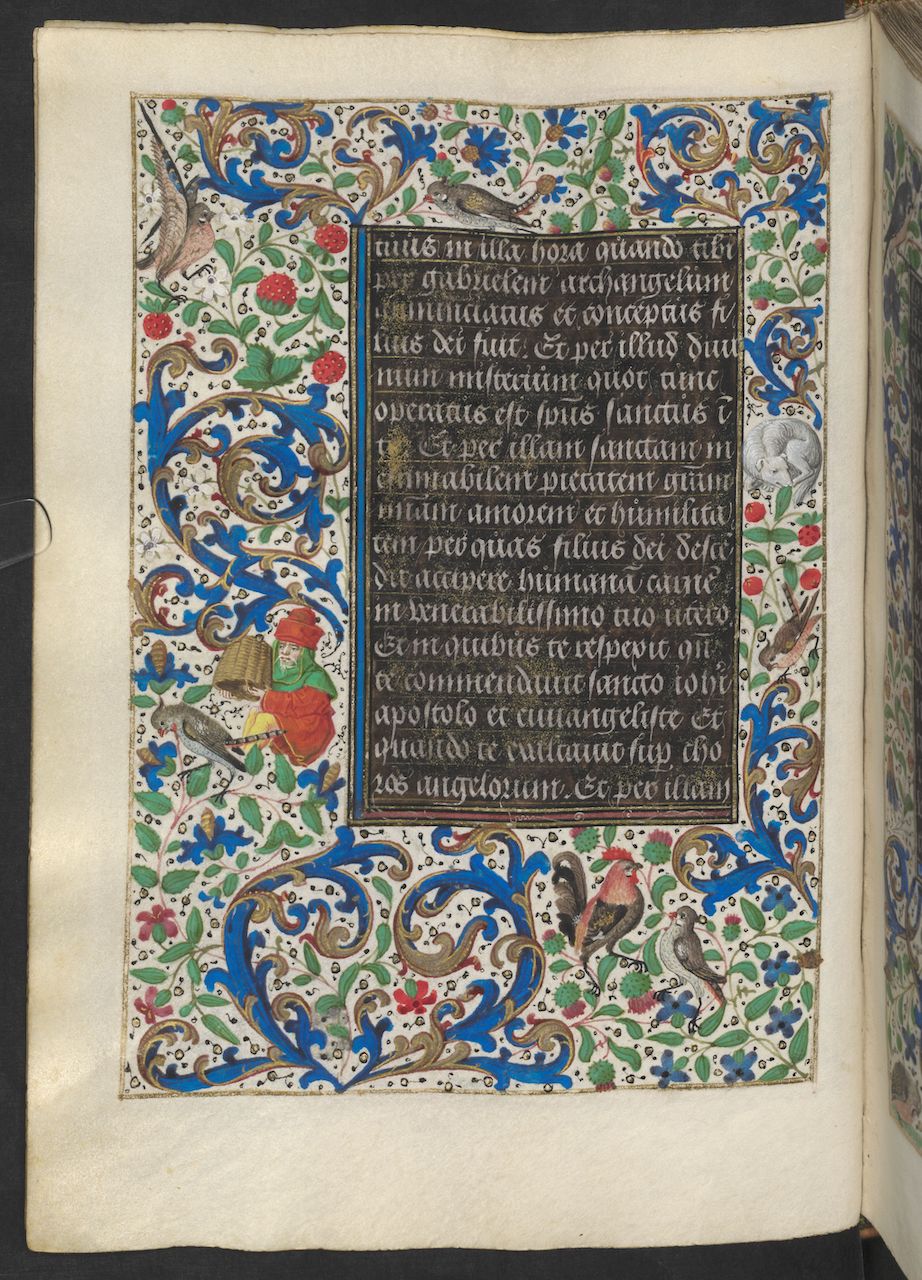 tiuis in illa hora quando tibi
per gabrielem archangelum
annunciatus et conceptus fi
lius dei fuit. Et per illud diui
num misterium quot tunc
operatus est spūs sanctus ī
te Et per illam sanctam in
enarrabilem pietatem grām
miām amorem et humilita
tem per quas filius dei desce
dit accipere humanā carnē
in venerabilissimo tuo utero
Et in quibus te respexit qn̄
te commendauit sancto iohi
apostolo et euuangeliste Et
quando te exaltauit sup cho
ros angelorum. Et per illam